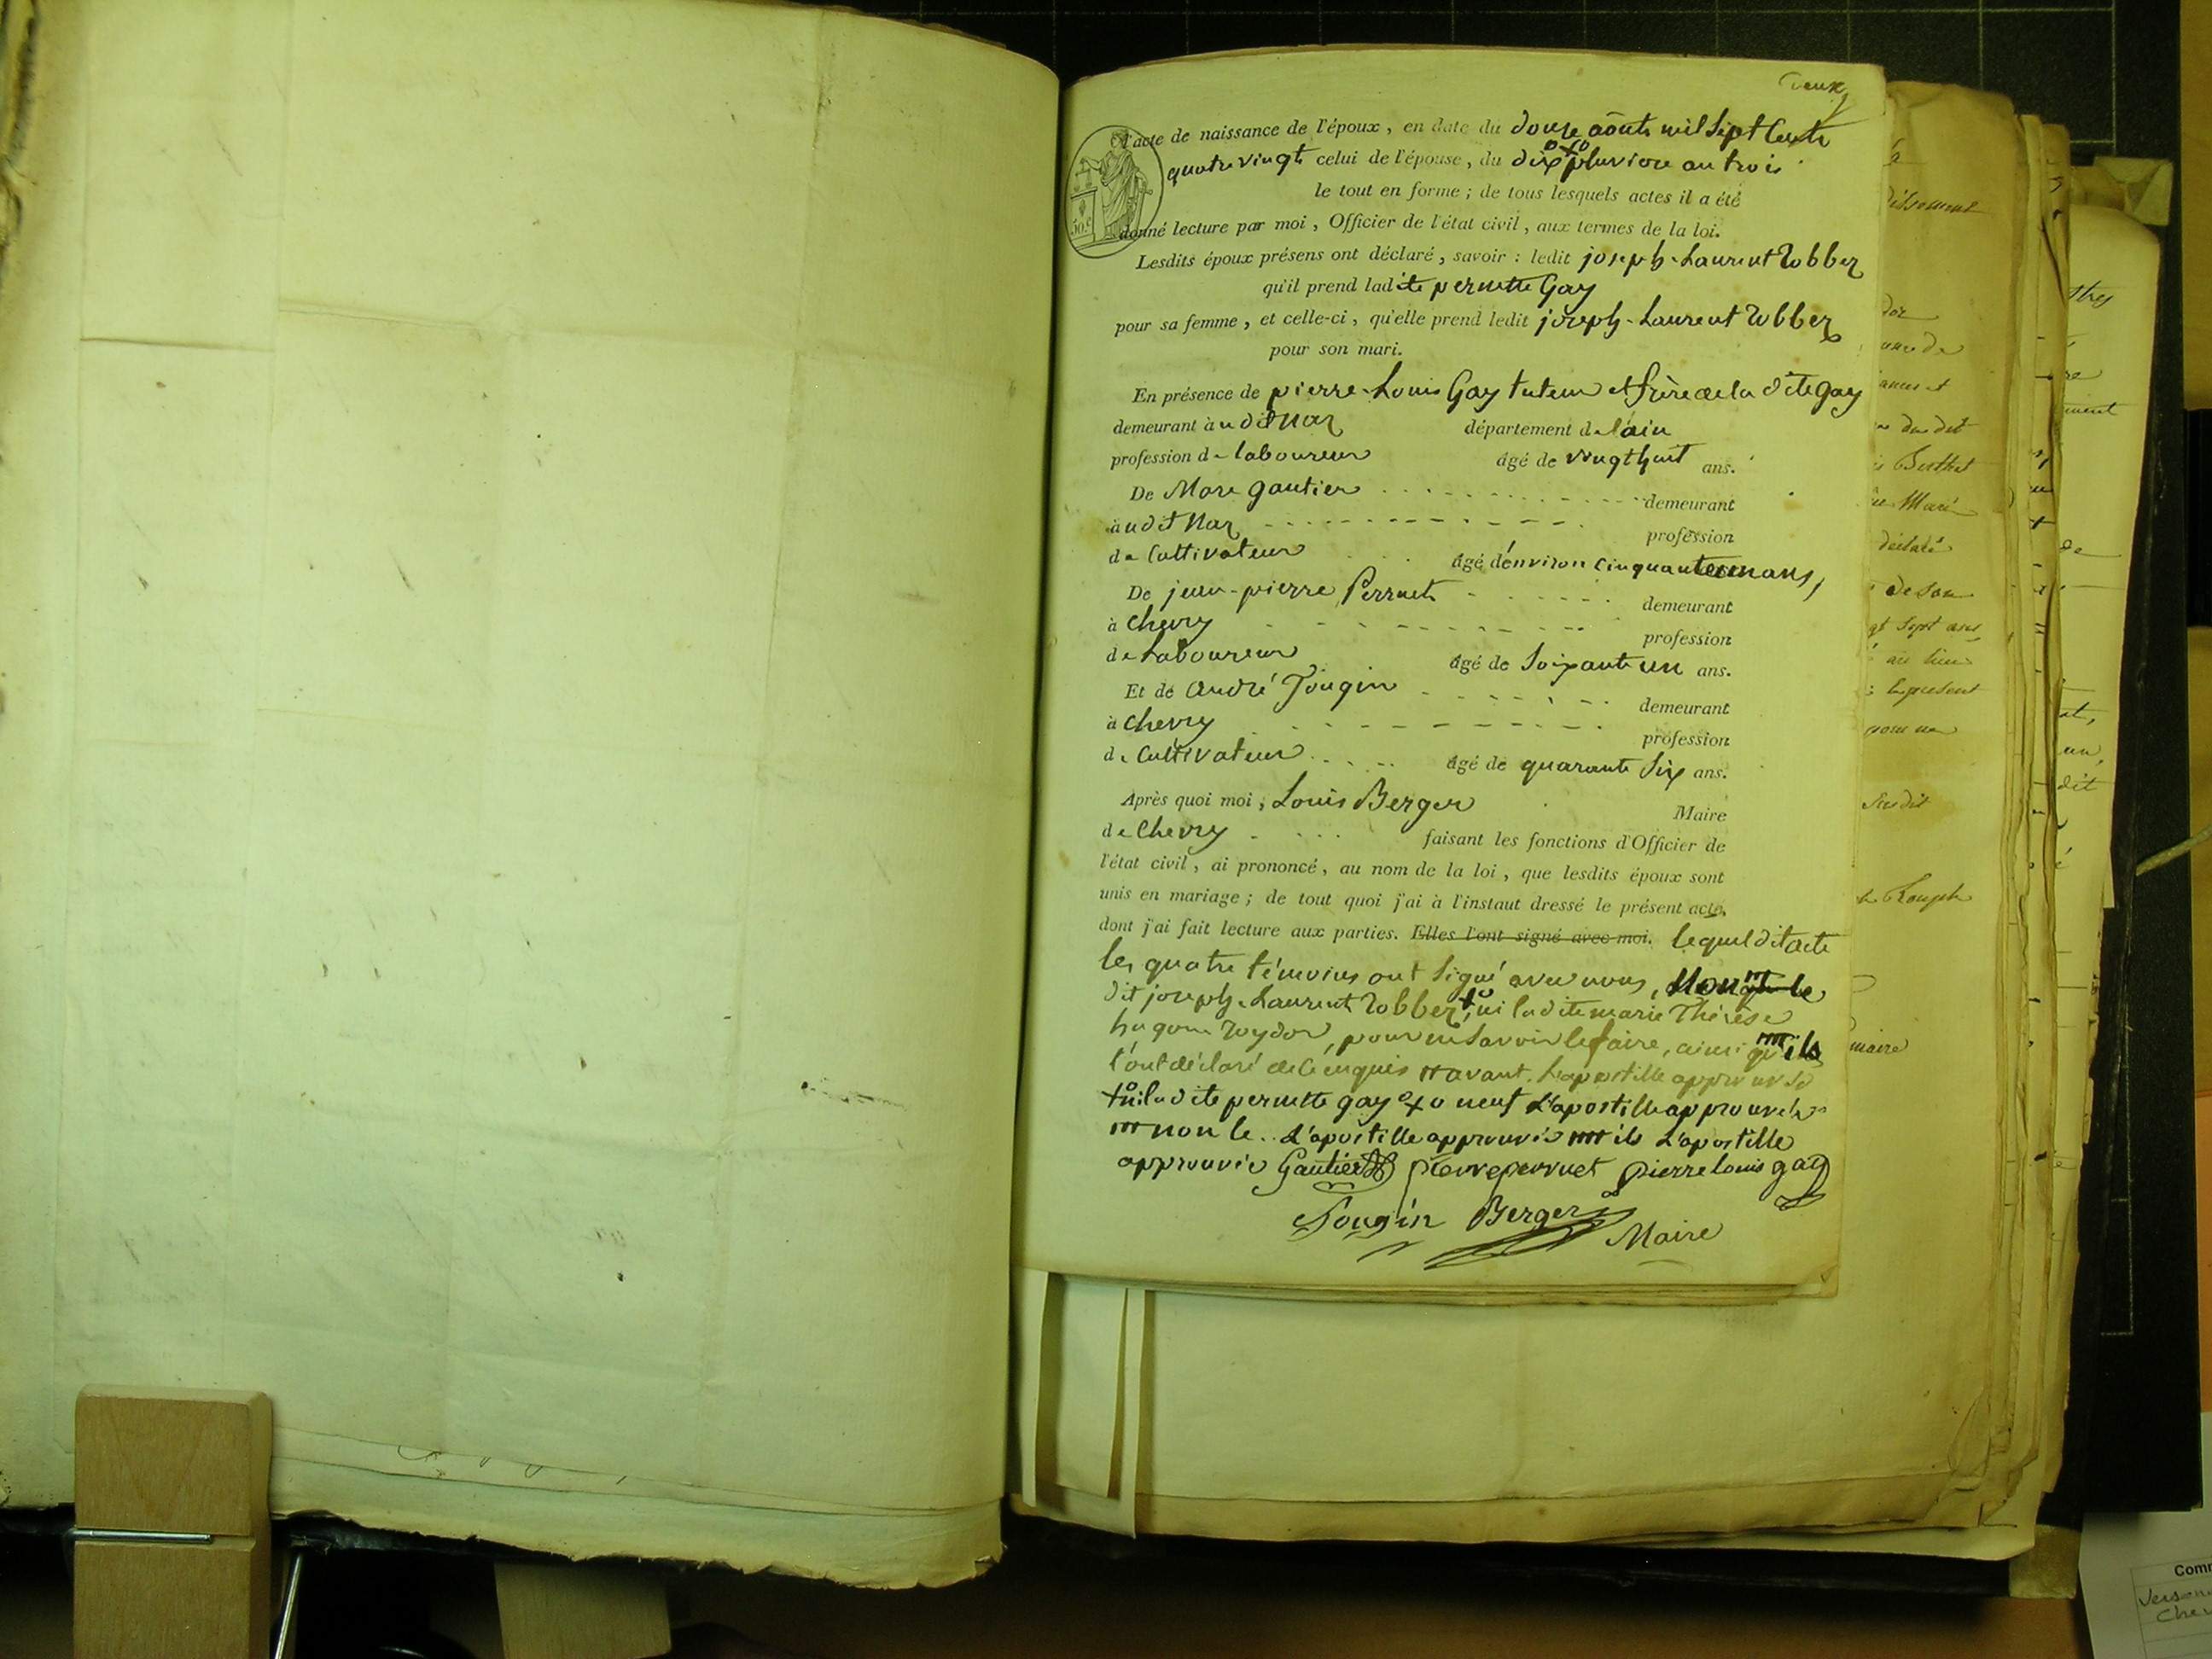 Deux
l'acte de naissance de l'époux, en date du douze aôut mil Sept Cent
quatre vingt celui de l'épouse, du dix °+° pluviose an trois
le tout en forme ; de tous lesquels actes il a été
50.c
donné lecture par moi, Officier de l'état civil, aux termes de la loi.
Lesdits époux présens ont déclaré, savoir : ledit joseph-Laurent Robbez
qu'il prend ladite pernette Gay
pour sa femme, et celle-ci, qu'elle prend ledit joseph-Laurent Robbez
pour son mari.
En présence de pierre-Louis Gay tuteur et frère de la dite gay
demeurant audit Naz département de l'ain
profession de laboureur âgé de vingt huit ans.
De Marc gautier demeurant
audit Naz profession
de Cultivateur âgé d'environ cinquante un ans,
De jean-pierre Perruet demeurant
à Chevry profession
de Laboureur âgé de Soixante un ans.
Et de André Tougin demeurant
à Chevry profession
de Cultivateur âgé de quarante Six ans.
Après quoi moi, Louis Berger Maire
de Chevry faisant les fonctions d'Officier de
l'état civil, ai prononcé, au nom de la loi, que lesdits époux sont
unis en mariage ; de tout quoi j'ai à l'instaut dressé le présent acte,
dont j'ai fait lecture aux parties. Elles l'ont signé avec moi. lequel dit acte
les quatre témoins ont signé avec nous, Non le
dit joseph-Laurent Robbez, ni ladite marie Thérèse
hugon Roydor, pour ne Savoir le faire, ainsi qu'ils
l'ont déclaré de ce enquis avant. L'apostille approuvée
ni ladite pernette gay °+° neuf L'apostille approuvée
non le.. L'apostille approuvée ils L'apostille
approuvée Gautier pierre perruet pierre louis gay
Tougin Berger Maire
dissement
dor
du dit
Berthet
Marié
déclaré
de son
gt sept ans
au lieu
le present
Susdit
maire
ment
dit
Comm
Chev